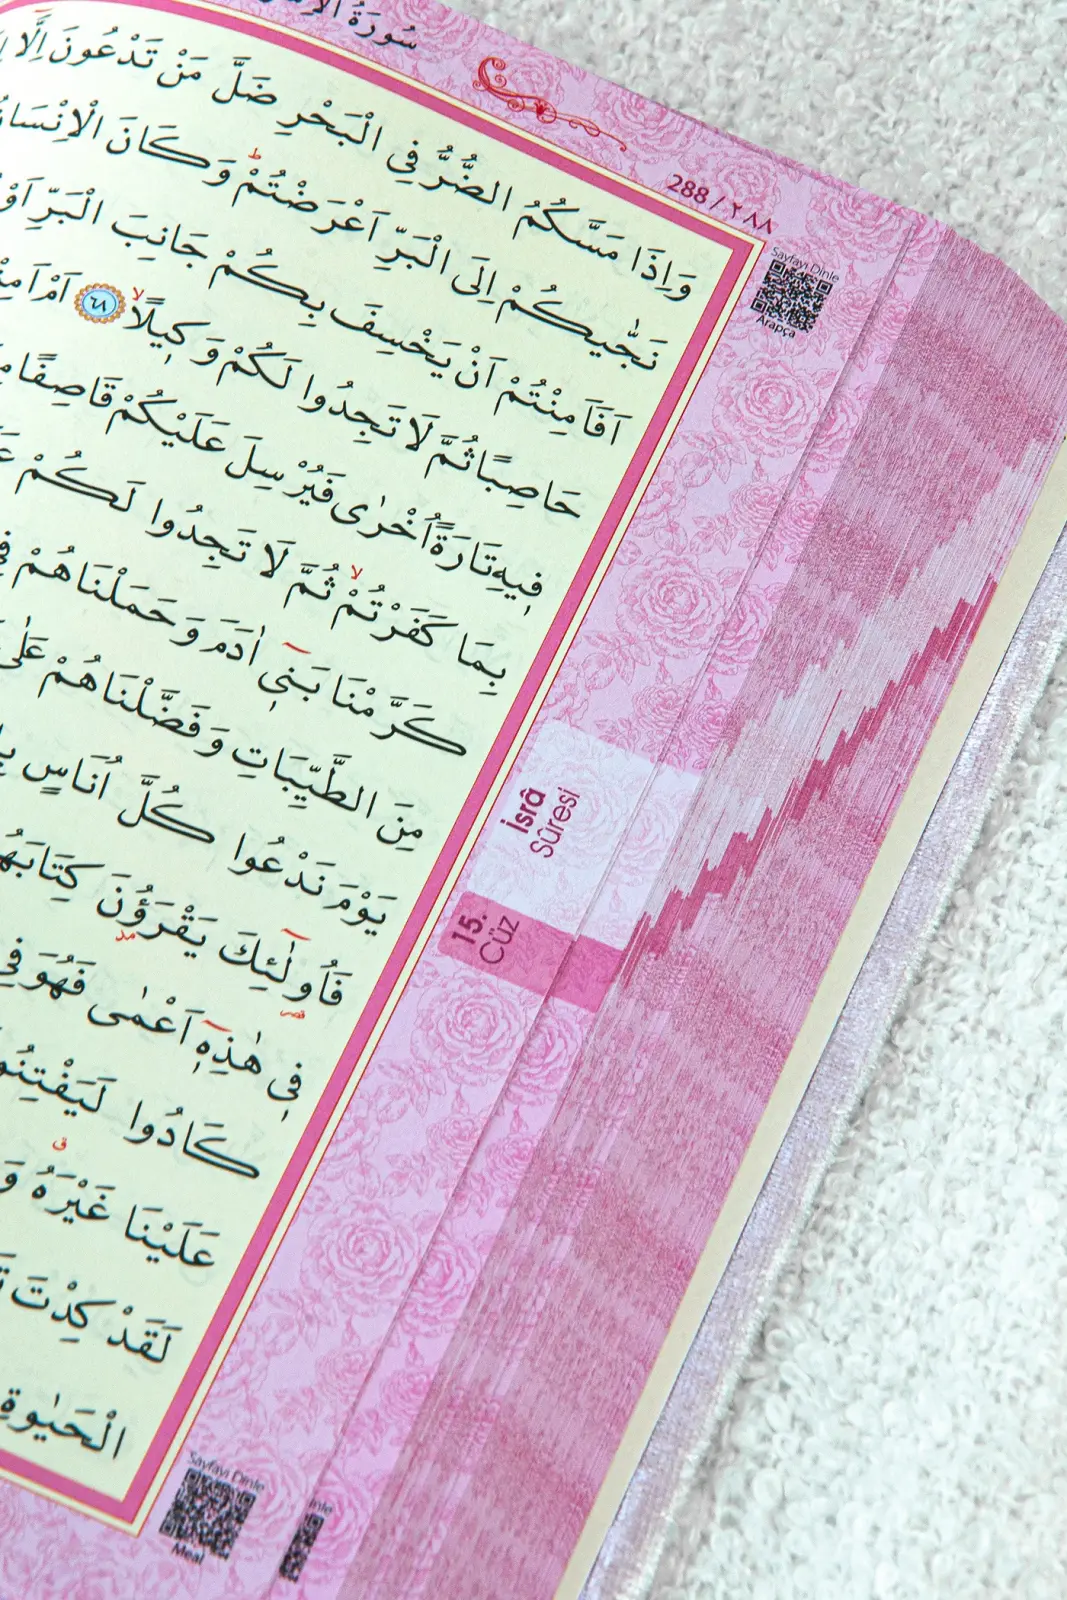 سُورَةُ
288 / ٢٨٨
Sayfayı Dinle
Arapça
وَاِذَا مَسَّكُمُ الضُّرُّ فِي الْبَحْرِ ضَلَّ مَنْ تَدْعُونَ اِلَّٓا
نَجّٰيكُمْ اِلَى الْبَرِّ اَعْرَضْتُمْۜ وَكَانَ الْاِنْسَانُ
اَفَاَمِنْتُمْ اَنْ يَخْسِفَ بِكُمْ جَانِبَ الْبَرِّ اَوْ
حَاصِبًا ثُمَّ لَا تَجِدُوا لَكُمْ وَكِيلًاۙ ٦٨ اَمْ اَمِنْ
فِيهِ تَارَةً اُخْرٰى فَيُرْسِلَ عَلَيْكُمْ قَاصِفًا
بِمَا كَفَرْتُمْۙ ثُمَّ لَا تَجِدُوا لَكُمْ
كَرَّمْنَا بَنٓي اٰدَمَ وَحَمَلْنَاهُمْ فِي
مِنَ الطَّيِّبَاتِ وَفَضَّلْنَاهُمْ عَلٰى
يَوْمَ نَدْعُوا كُلَّ اُنَاسٍ
فَاُو۬لٰٓئِكَ يَقْرَؤُ۫نَ كِتَابَهُ
فِي هٰذِهٓ اَعْمٰى فَهُوَ فِي
كَادُوا لَيَفْتِنُو
عَلَيْنَا غَيْرَهُۗ وَ
لَقَدْ كِدْتَ
الْحَيٰوةِ
İsrâ
Sûresi
15.
Cüz
Sayfayı Dinle
Meal